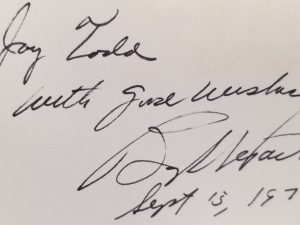 Jay Todd
with good wishes
Sept 13, 197